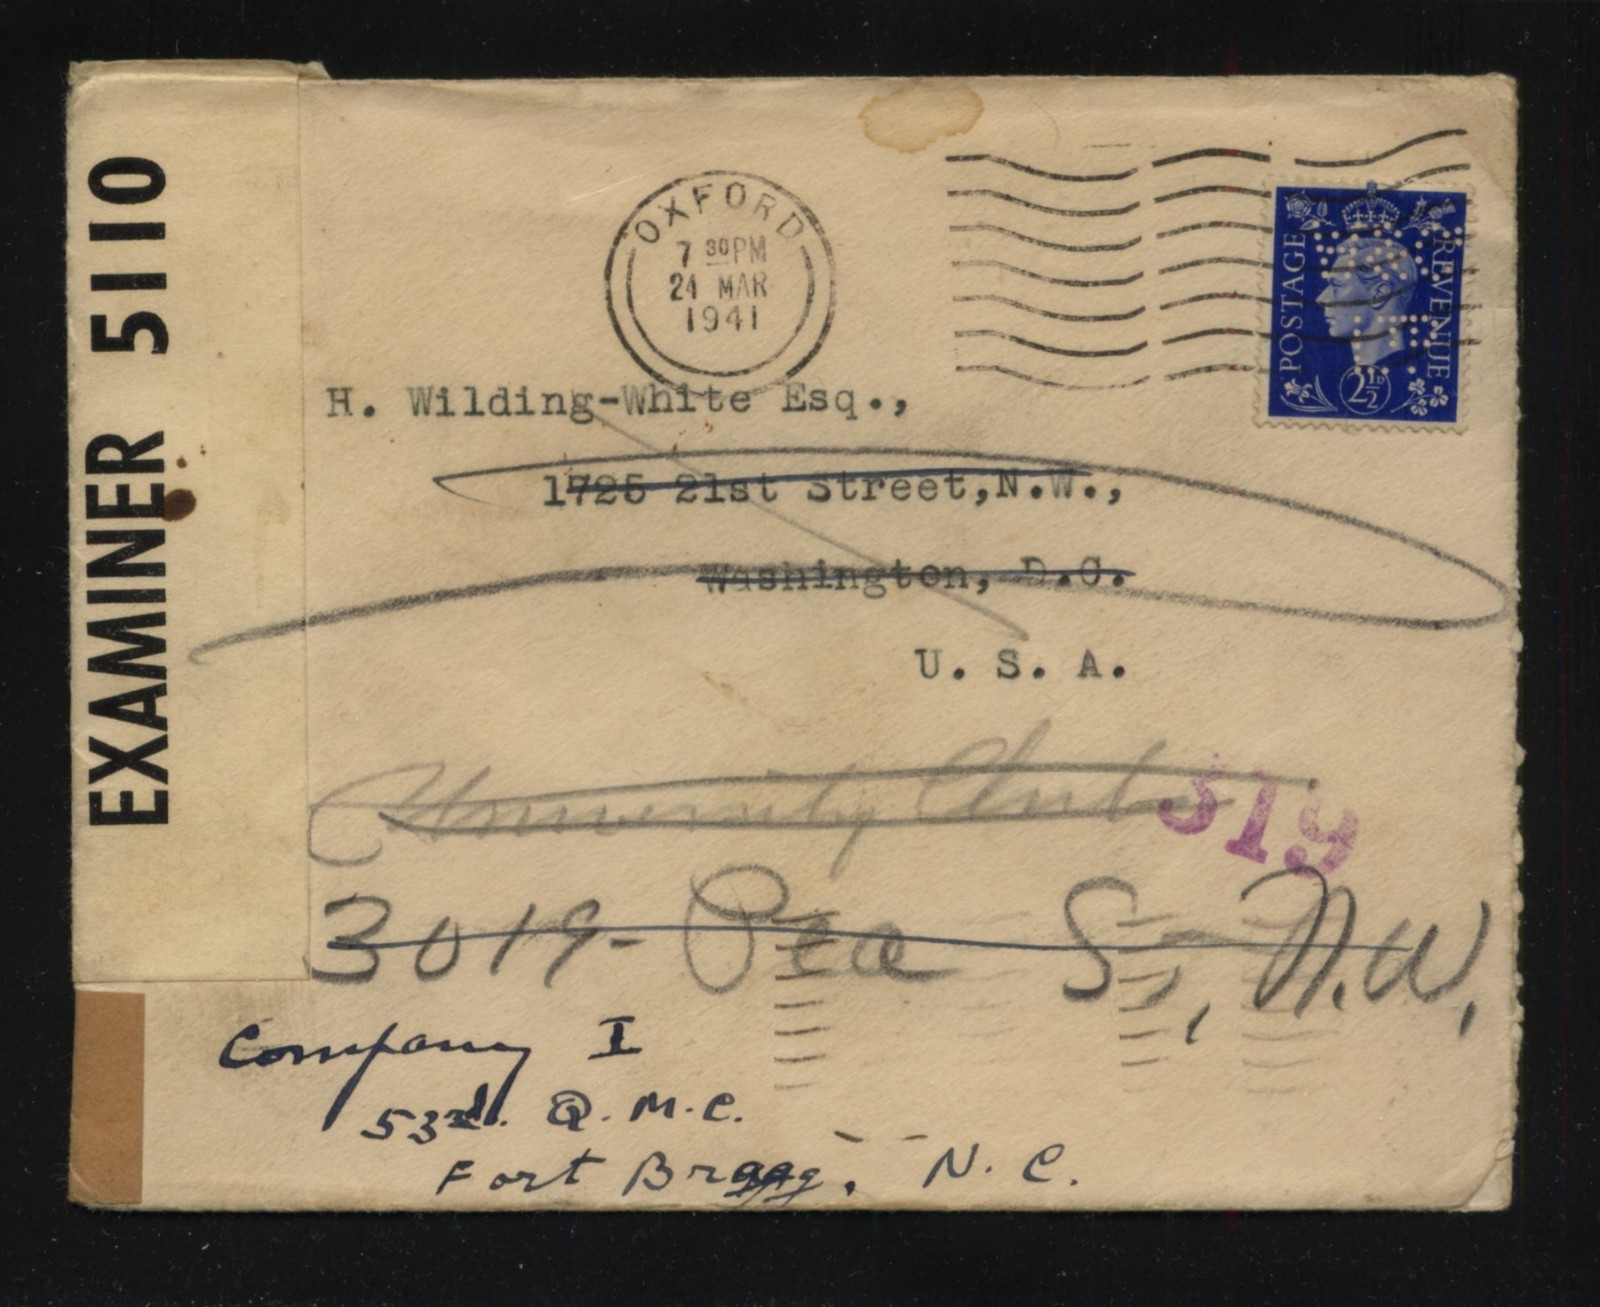 EXAMINER 5110
OXFORD
7 30PM
24 MAR
1941
POSTAGE
REVENUE
2½D
H. Wilding-White Esq.,
1725 21st Street,N.W.,
Washington, D.C.
U. S. A.
University Club
319
3019- Pea St, N.W.
Company I
53rd. Q.M.C.
Fort Bragg, N.C.